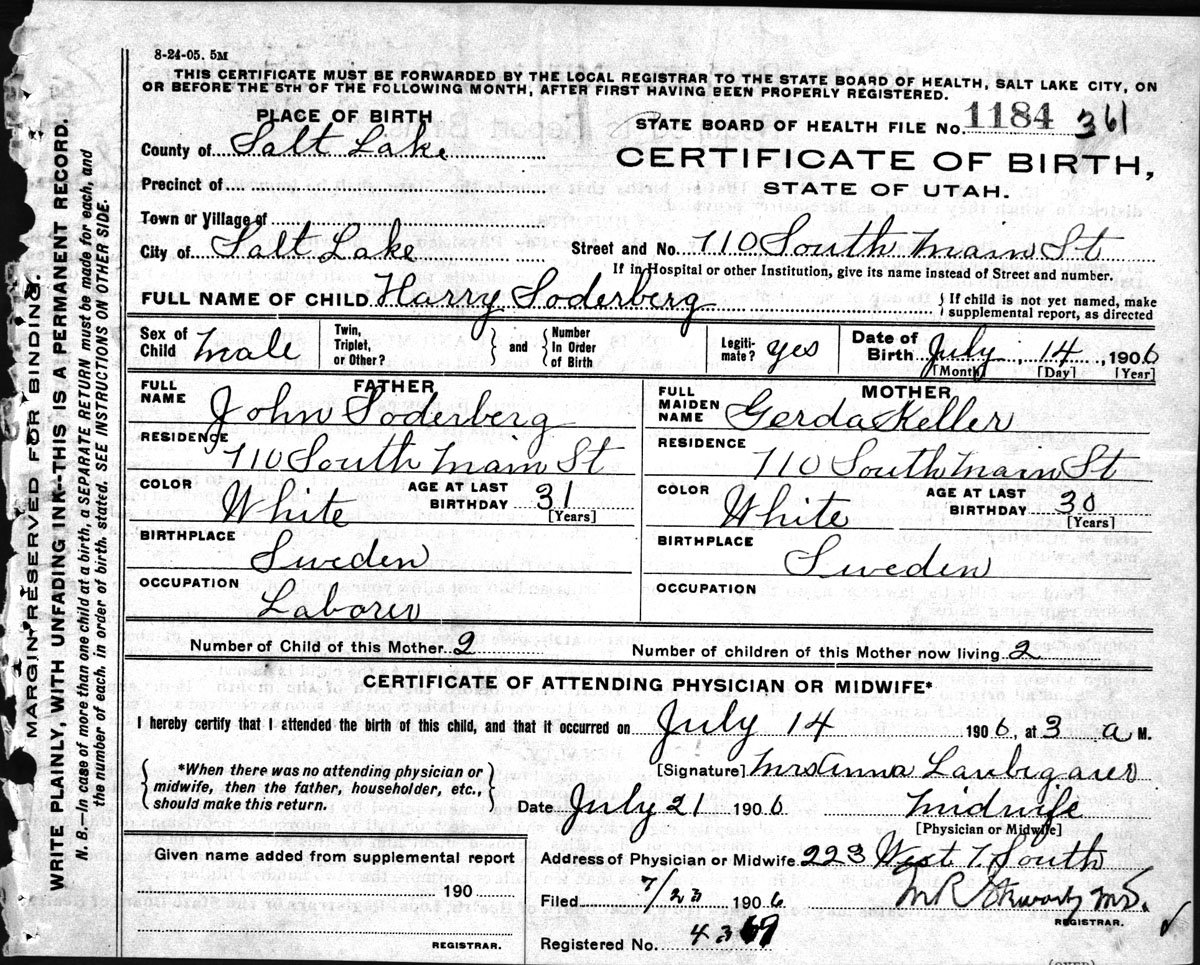 8-24-05. 5M
THIS CERTIFICATE MUST BE FORWARDED BY THE LOCAL REGISTRAR TO THE STATE BOARD OF HEALTH, SALT LAKE CITY, ON
OR BEFORE THE 5TH OF THE FOLLOWING MONTH, AFTER FIRST HAVING BEEN PROPERLY REGISTERED.
PLACE OF BIRTH
STATE BOARD OF HEALTH FILE NO. 1184 361
County of Salt Lake
CERTIFICATE OF BIRTH,
STATE OF UTAH.
Precinct of
Town or Village of
City of Salt Lake Street and No. 710 South Main St
If in Hospital or other Institution, give its name instead of Street and number.
FULL NAME OF CHILD Harry Soderberg { If child is not yet named, make supplemental report, as directed
Sex of Child Male Twin, Triplet, or Other? } and { Number In Order of Birth Legitimate? yes Date of Birth July 14, 1906
[Month] [Day] [Year]
FATHER MOTHER
FULL NAME John Soderberg FULL MAIDEN NAME Gerda Keller
RESIDENCE 710 South Main St RESIDENCE 710 South Main St
COLOR White AGE AT LAST BIRTHDAY 31 [Years] COLOR White AGE AT LAST BIRTHDAY 30 [Years]
BIRTHPLACE Sweden BIRTHPLACE Sweden
OCCUPATION Laborer OCCUPATION
Number of Child of this Mother 2 Number of children of this Mother now living 2
CERTIFICATE OF ATTENDING PHYSICIAN OR MIDWIFE*
I hereby certify that I attended the birth of this child, and that it occurred on July 14 1906, at 3 a M.
{ *When there was no attending physician or
midwife, then the father, householder, etc.,
should make this return. }
[Signature] Mrs Anna
Date July 21 1906 Midwife
[Physician or Midwife]
Given name added from supplemental report
Address of Physician or Midwife 223 West 7 South
190
Filed 7/23 1906 M.D.
REGISTRAR.
REGISTRAR.
Registered No. 43
MARGIN RESERVED FOR BINDING.
WRITE PLAINLY, WITH UNFADING INK--THIS IS A PERMANENT RECORD.
N. B.—In case of more than one child at a birth, a SEPARATE RETURN must be made for each, and
the number of each, in order of birth, stated. SEE INSTRUCTIONS ON OTHER SIDE.